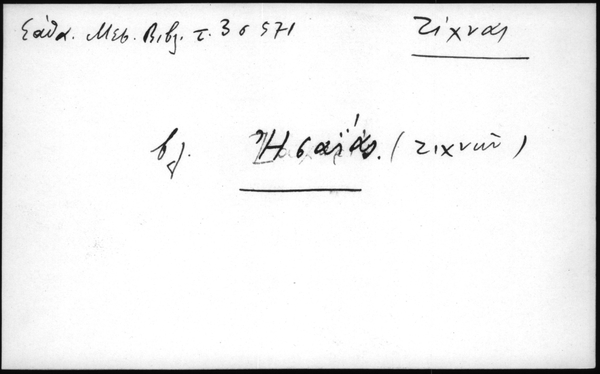 Σάθα. Μεσ. Βιβλ. τ. 3 σ 571 Ζίχνας
βλ. Ἡσαΐας. (Ζιχνῶν)